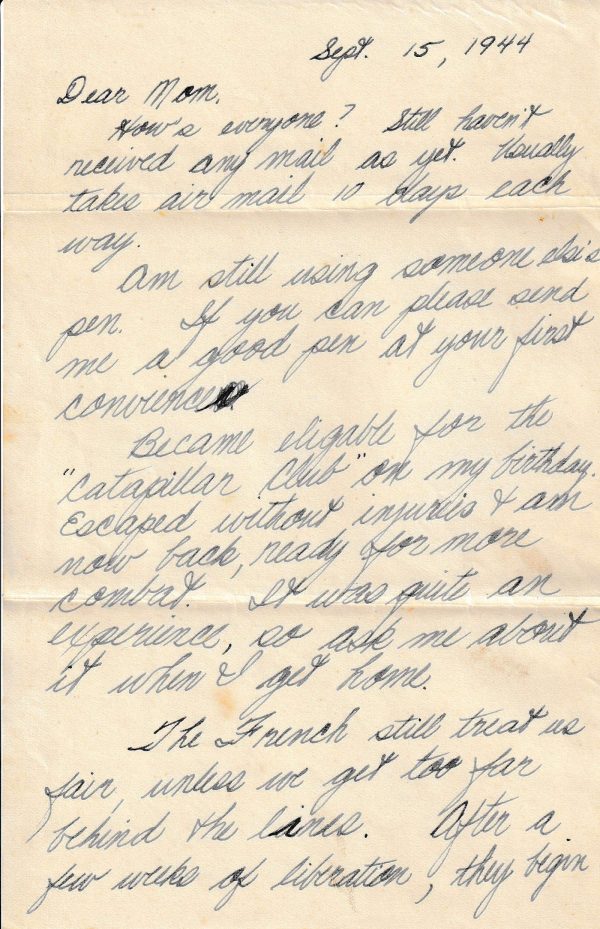 Sept. 15, 1944
Dear Mom,
How's everyone? Still haven't
received any mail as yet. Usually
takes air mail 10 days each
way.
Am still using someone else's
pen. If you can please send
me a good pen at your first
convience.
Became eligable for the
"Catapillar Club" on my birthday.
Escaped without injuries & am
now back, ready for more
combat. It was quite an
experience, so ask me about
it when I get home.
The French still treat us
fair, unless we get too far
behind the lines. After a
few weeks of liberation, they begin